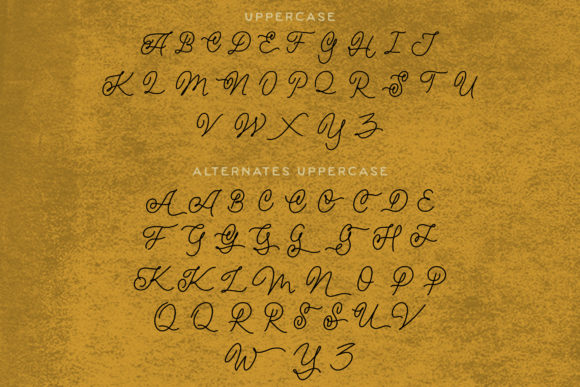 UPPERCASE
A B C D E F G H I J
K L M N O P Q R S T U
V W X Y Z
ALTERNATES UPPERCASE
A A B C C C C D E
F G G G G G H I
K K L M N O P P
Q Q R R S S U V
W Y Z